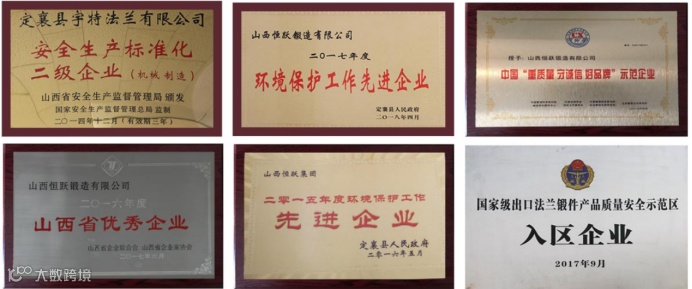 定襄县宇特法兰有限公司
安全生产标准化
二级企业（机械制造）
山西省安全生产监督管理局 颁发
国家安全生产监督管理总局 监制
二〇一四年十二月（有效期三年）
山西恒跃锻造有限公司
二〇一七年度
环境保护工作先进企业
定襄县人民政府
二〇一八年四月
授予：山西恒跃锻造有限公司
中国“重质量 守诚信 好品牌”示范企业
山西恒跃锻造有限公司
二〇一六年度
山西省优秀企业
山西省企业联合会 山西省企业家协会
二〇一七年六月
山西恒跃集团
二零一五年度环境保护工作
先进企业
定襄县人民政府
二零一六年五月
国家级出口法兰锻件产品质量安全示范区
入区企业
2017年9月
大数跨境